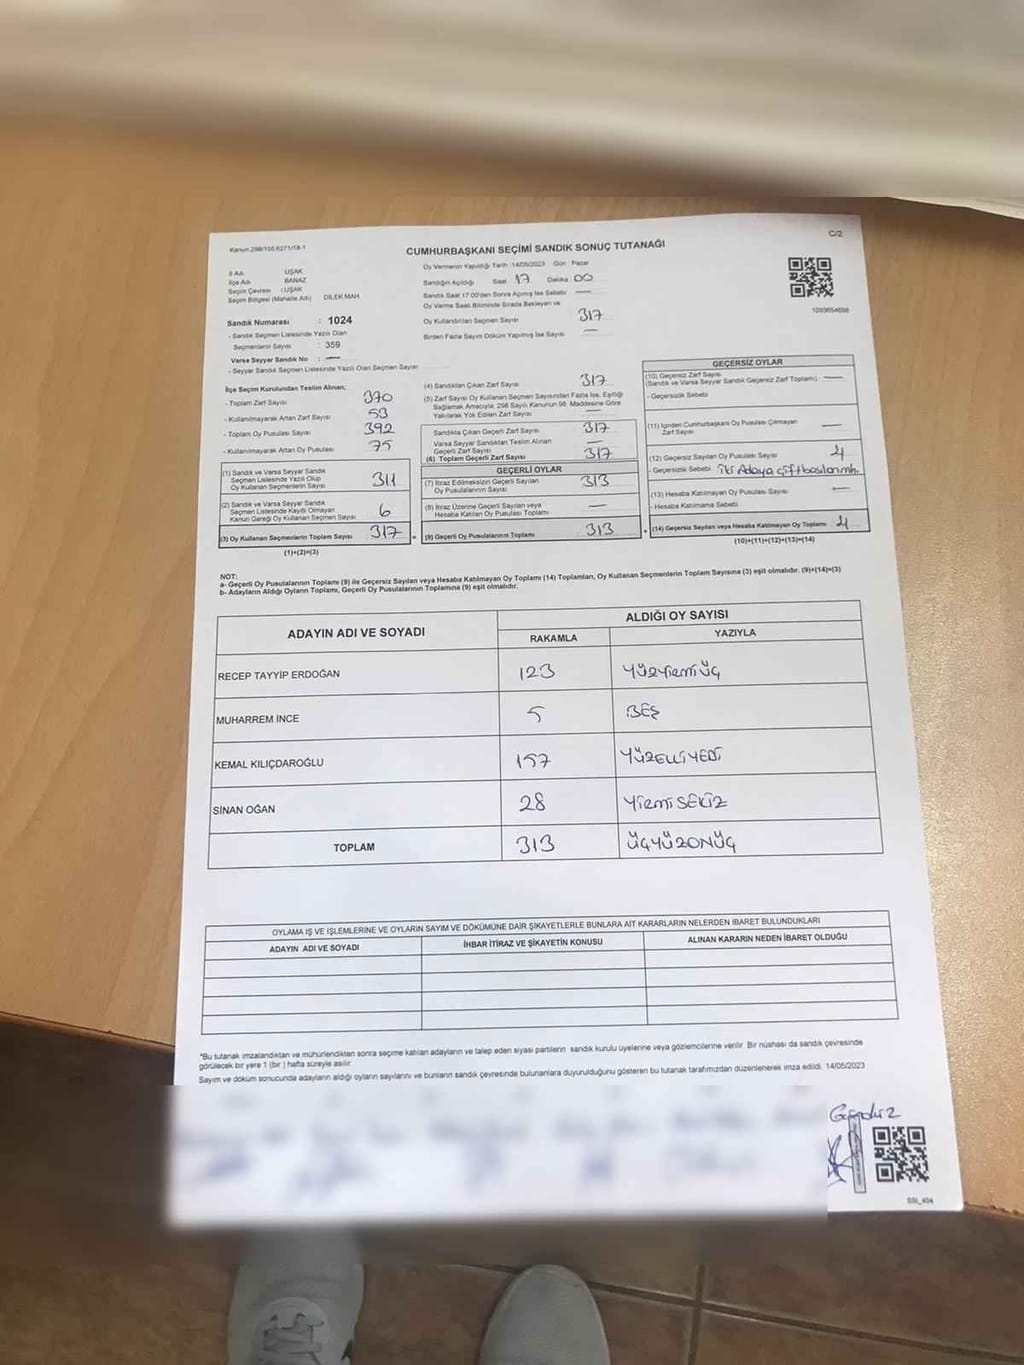 Kanun:298/105.6271/18-1
C/2
CUMHURBAŞKANI SEÇİMİ SANDIK SONUÇ TUTANAĞI
İl Adı UŞAK
İlçe Adı BANAZ
Seçim Çevresi : UŞAK
Seçim Bölgesi (Mahalle Adı) DİLEK MAH.
Sandık Numarası : 1024
- Sandık Seçmen Listesinde Yazılı Olan
Seçmenlerin Sayısı : 359
Varsa Seyyar Sandık No : —
- Seyyar Sandık Seçmen Listesinde Yazılı Olan Seçmen Sayısı
Oy Vermenin Yapıldığı Tarih :14/05/2023 Gün : Pazar
Sandığın Açıldığı Saat 17 Dakika 00
Sandık Saat 17:00'den Sonra Açılmış İse Sebebi —
Oy Verme Saati Bitiminde Sırada Bekleyen ve
Oy Kullandırılan Seçmen Sayısı 317
Birden Fazla Sayım Döküm Yapılmış İse Sayısı —
1093654698
İlçe Seçim Kurulundan Teslim Alınan;
- Toplam Zarf Sayısı 370
- Kullanılmayarak Artan Zarf Sayısı 53
- Toplam Oy Pusulası Sayısı 392
- Kullanılmayarak Artan Oy Pusulası 75
(1) Sandık ve Varsa Seyyar Sandık
Seçmen Listesinde Yazılı Olup
Oy Kullanan Seçmenlerin Sayısı 311
(2) Sandık ve Varsa Seyyar Sandık
Seçmen Listesinde Kayıtlı Olmayan
Kanun Gereği Oy Kullanan Seçmen Sayısı 6
(3) Oy Kullanan Seçmenlerin Toplam Sayısı 317
(1)+(2)=(3)
(4) Sandıktan Çıkan Zarf Sayısı 317
(5) Zarf Sayısı Oy Kullanan Seçmen Sayısından Fazla İse, Eşitliği
Sağlamak Amacıyla, 298 Sayılı Kanunun 98. Maddesine Göre
Yakılarak Yok Edilen Zarf Sayısı —
Sandıkta Çıkan Geçerli Zarf Sayısı 317
Varsa Seyyar Sandıktan Teslim Alınan
Geçerli Zarf Sayısı —
(6) Toplam Geçerli Zarf Sayısı 317
GEÇERLİ OYLAR
(7) İtiraz Edilmeksizin Geçerli Sayılan
Oy Pusulalarının Sayısı 313
(8) İtiraz Üzerine Geçerli Sayılan veya
Hesaba Katılan Oy Pusulası Toplamı —
(9) Geçerli Oy Pusulalarının Toplamı 313
GEÇERSİZ OYLAR
(10) Geçersiz Zarf Sayısı
(Sandık ve Varsa Seyyar Sandık Geçersiz Zarf Toplamı) —
- Geçersizlik Sebebi
(11) İçinden Cumhurbaşkanı Oy Pusulası Çıkmayan
Zarf Sayısı —
(12) Geçersiz Sayılan Oy Pusulası Sayısı 4
- Geçersizlik Sebebi İki Adaya çift basılan mh.
(13) Hesaba Katılmayan Oy Pusulası Sayısı —
- Hesaba Katılmama Sebebi
(14) Geçersiz Sayılan veya Hesaba Katılmayan Oy Toplamı 4
(10)+(11)+(12)+(13)=(14)
NOT:
a- Geçerli Oy Pusulalarının Toplamı (9) ile Geçersiz Sayılan veya Hesaba Katılmayan Oy Toplamı (14) Toplamları, Oy Kullanan Seçmenlerin Toplam Sayısına (3) eşit olmalıdır. (9)+(14)=(3)
b- Adayların Aldığı Oyların Toplamı, Geçerli Oy Pusulalarının Toplamına (9) eşit olmalıdır.
ADAYIN ADI VE SOYADI ALDIĞI OY SAYISI
RAKAMLA YAZIYLA
RECEP TAYYİP ERDOĞAN 123 YÜZYİRMİÜÇ
MUHARREM İNCE 5 BEŞ
KEMAL KILIÇDAROĞLU 157 YÜZELLİYEDİ
SİNAN OĞAN 28 YİRMİSEKİZ
TOPLAM 313 ÜÇYÜZONÜÇ
OYLAMA İŞ VE İŞLEMLERİNE VE OYLARIN SAYIM VE DÖKÜMÜNE DAİR ŞİKAYETLERLE BUNLARA AİT KARARLARIN NELERDEN İBARET BULUNDUKLARI
ADAYIN ADI VE SOYADI İHBAR İTİRAZ VE ŞİKAYETİN KONUSU ALINAN KARARIN NEDEN İBARET OLDUĞU
*Bu tutanak imzalandıktan ve mühürlendikten sonra seçime katılan adayların ve talep eden siyasi partilerin sandık kurulu üyelerine veya gözlemcilerine verilir. Bir nüshası da sandık çevresinde
görülecek bir yere 1 (bir ) hafta süreyle asılır
Sayım ve döküm sonucunda adayların aldığı oyların sayılarını ve bunların sandık çevresinde bulunanlara duyurulduğunu gösteren bu tutanak tarafımızdan düzenlenerek imza edildi. 14/05/2023
SSt_404